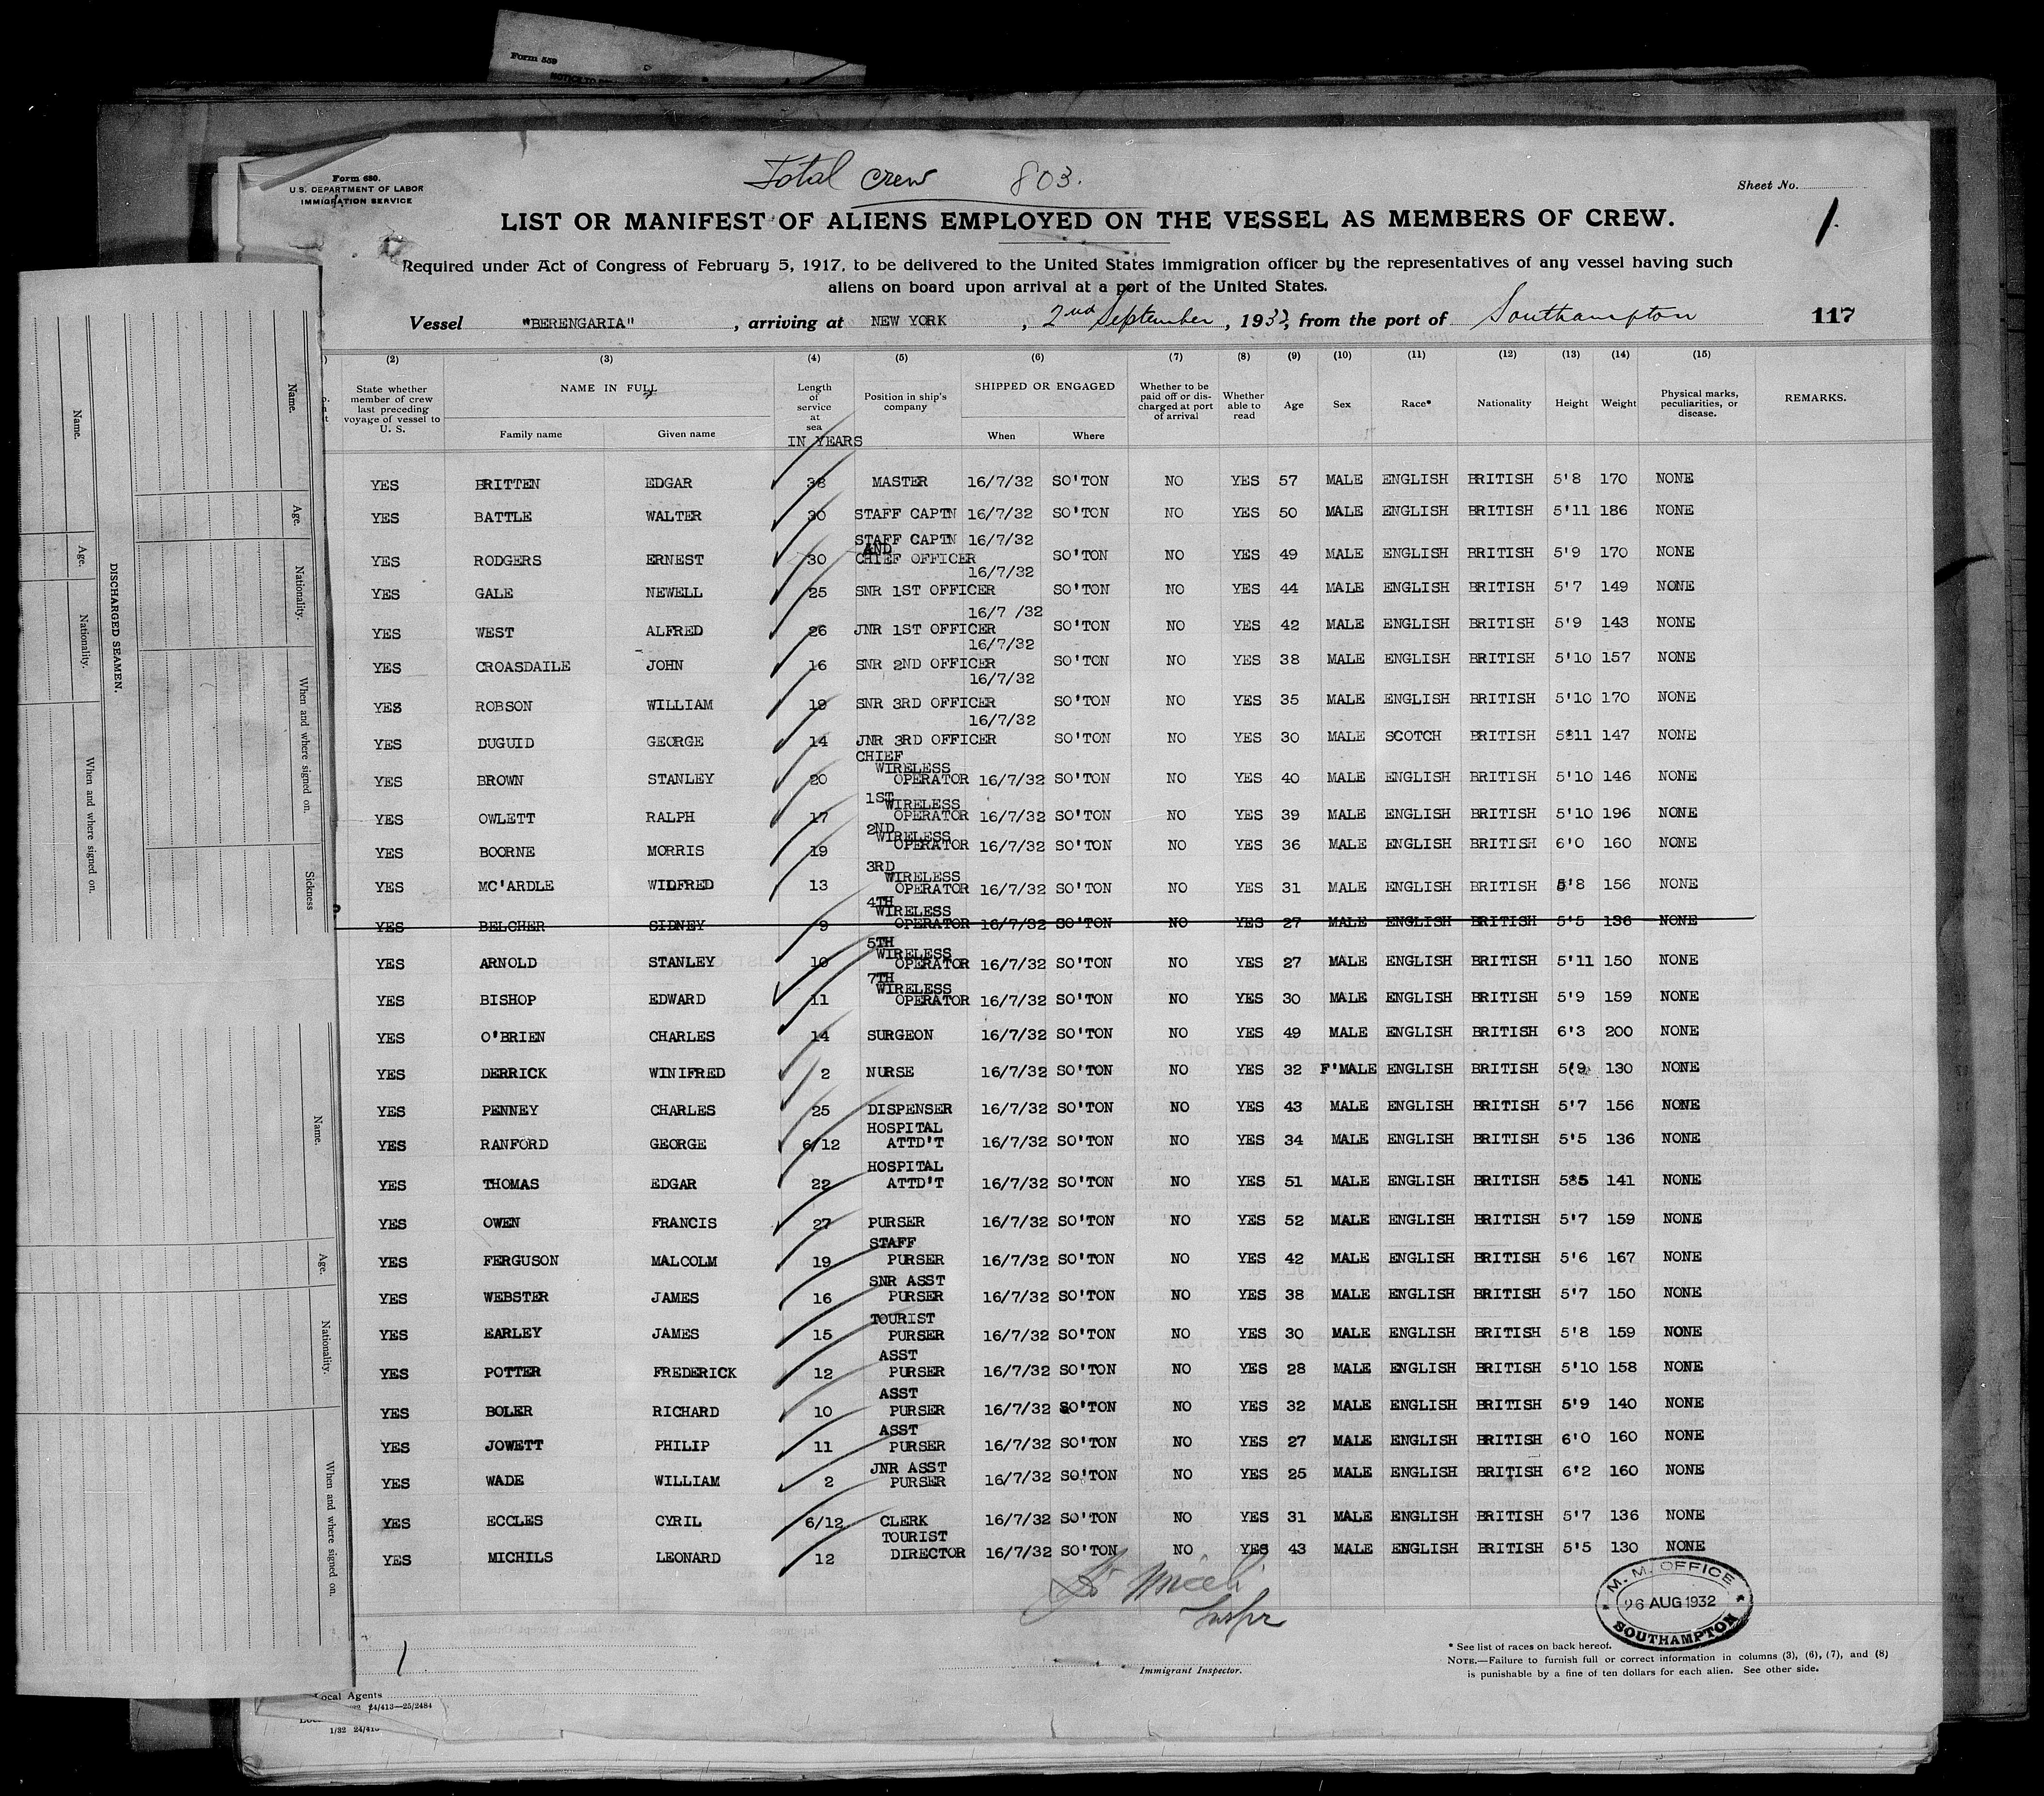 Form 559
NOTICE TO
Total crew 803.
Form 680.
U.S. DEPARTMENT OF LABOR
IMMIGRATION SERVICE
Sheet No.
1
LIST OR MANIFEST OF ALIENS EMPLOYED ON THE VESSEL AS MEMBERS OF CREW.
Required under Act of Congress of February 5, 1917, to be delivered to the United States immigration officer by the representatives of any vessel having such
aliens on board upon arrival at a port of the United States.
Vessel "BERENGARIA", arriving at NEW YORK, 2nd September, 1932, from the port of Southampton 117
(2) (3) (4) (5) (6) (7) (8) (9) (10) (11) (12) (13) (14) (15)
State whether member of crew last preceding voyage of vessel to U. S. NAME IN FULL Family name Given name Length of service at sea IN YEARS Position in ship's company SHIPPED OR ENGAGED When Where Whether to be paid off or discharged at port of arrival Whether able to read Age Sex Race* Nationality Height Weight Physical marks, peculiarities, or disease. REMARKS.
YES BRITTEN EDGAR 38 MASTER 16/7/32 SO'TON NO YES 57 MALE ENGLISH BRITISH 5'8 170 NONE
YES BATTLE WALTER 30 STAFF CAPTN 16/7/32 SO'TON NO YES 50 MALE ENGLISH BRITISH 5'11 186 NONE
YES RODGERS ERNEST 30 STAFF CAPTN AND CHIEF OFFICER 16/7/32 SO'TON NO YES 49 MALE ENGLISH BRITISH 5'9 170 NONE
YES GALE NEWELL 25 SNR 1ST OFFICER 16/7/32 SO'TON NO YES 44 MALE ENGLISH BRITISH 5'7 149 NONE
YES WEST ALFRED 26 JNR 1ST OFFICER 16/7 /32 SO'TON NO YES 42 MALE ENGLISH BRITISH 5'9 143 NONE
YES CROASDAILE JOHN 16 SNR 2ND OFFICER 16/7/32 SO'TON NO YES 38 MALE ENGLISH BRITISH 5'10 157 NONE
YES ROBSON WILLIAM 19 SNR 3RD OFFICER 16/7/32 SO'TON NO YES 35 MALE ENGLISH BRITISH 5'10 170 NONE
YES DUGUID GEORGE 14 JNR 3RD OFFICER 16/7/32 SO'TON NO YES 30 MALE SCOTCH BRITISH 5'11 147 NONE
YES BROWN STANLEY 20 CHIEF WIRELESS OPERATOR 16/7/32 SO'TON NO YES 40 MALE ENGLISH BRITISH 5'10 146 NONE
YES OWLETT RALPH 17 1ST WIRELESS OPERATOR 16/7/32 SO'TON NO YES 39 MALE ENGLISH BRITISH 5'10 196 NONE
YES BOORNE MORRIS 19 2ND WIRELESS OPERATOR 16/7/32 SO'TON NO YES 36 MALE ENGLISH BRITISH 6'0 160 NONE
YES MC'ARDLE WILFRED 13 3RD WIRELESS OPERATOR 16/7/32 SO'TON NO YES 31 MALE ENGLISH BRITISH 5'8 156 NONE
YES BELCHER SIDNEY 9 4TH WIRELESS OPERATOR 16/7/32 SO'TON NO YES 27 MALE ENGLISH BRITISH 5'5 136 NONE
YES ARNOLD STANLEY 10 5TH WIRELESS OPERATOR 16/7/32 SO'TON NO YES 27 MALE ENGLISH BRITISH 5'11 150 NONE
YES BISHOP EDWARD 11 7TH WIRELESS OPERATOR 16/7/32 SO'TON NO YES 30 MALE ENGLISH BRITISH 5'9 159 NONE
YES O'BRIEN CHARLES 14 SURGEON 16/7/32 SO'TON NO YES 49 MALE ENGLISH BRITISH 6'3 200 NONE
YES DERRICK WINIFRED 2 NURSE 16/7/32 SO'TON NO YES 32 F'MALE ENGLISH BRITISH 5'9 130 NONE
YES PENNEY CHARLES 25 DISPENSER 16/7/32 SO'TON NO YES 43 MALE ENGLISH BRITISH 5'7 156 NONE
YES RANFORD GEORGE 6/12 HOSPITAL ATTD'T 16/7/32 SO'TON NO YES 34 MALE ENGLISH BRITISH 5'5 136 NONE
YES THOMAS EDGAR 22 HOSPITAL ATTD'T 16/7/32 SO'TON NO YES 51 MALE ENGLISH BRITISH 5'5 141 NONE
YES OWEN FRANCIS 27 PURSER 16/7/32 SO'TON NO YES 52 MALE ENGLISH BRITISH 5'7 159 NONE
YES FERGUSON MALCOLM 19 STAFF PURSER 16/7/32 SO'TON NO YES 42 MALE ENGLISH BRITISH 5'6 167 NONE
YES WEBSTER JAMES 16 SNR ASST PURSER 16/7/32 SO'TON NO YES 38 MALE ENGLISH BRITISH 5'7 150 NONE
YES EARLEY JAMES 15 TOURIST PURSER 16/7/32 SO'TON NO YES 30 MALE ENGLISH BRITISH 5'8 159 NONE
YES POTTER FREDERICK 12 ASST PURSER 16/7/32 SO'TON NO YES 28 MALE ENGLISH BRITISH 5'10 158 NONE
YES BOLER RICHARD 10 ASST PURSER 16/7/32 SO'TON NO YES 32 MALE ENGLISH BRITISH 5'9 140 NONE
YES JOWETT PHILIP 11 ASST PURSER 16/7/32 SO'TON NO YES 27 MALE ENGLISH BRITISH 6'0 160 NONE
YES WADE WILLIAM 2 JNR ASST PURSER 16/7/32 SO'TON NO YES 25 MALE ENGLISH BRITISH 6'2 160 NONE
YES ECCLES CYRIL 6/12 CLERK 16/7/32 SO'TON NO YES 31 MALE ENGLISH BRITISH 5'7 136 NONE
YES MICHILS LEONARD 12 TOURIST DIRECTOR 16/7/32 SO'TON NO YES 43 MALE ENGLISH BRITISH 5'5 130 NONE
Inspr
Immigrant Inspector.
M. M. OFFICE
26 AUG 1932
SOUTHAMPTON
* See list of races on back hereof.
NOTE.—Failure to furnish full or correct information in columns (3), (6), (7), and (8)
is punishable by a fine of ten dollars for each alien. See other side.
1
Local Agents
24/413—25/2484
1/32 24/413
DISCHARGED SEAMEN.
Name.
Age.
Nationality.
When and where signed on.
Name.
Age.
Nationality.
When and where signed on.
Sickness
Name.
Age.
Nationality.
When and where signed on.